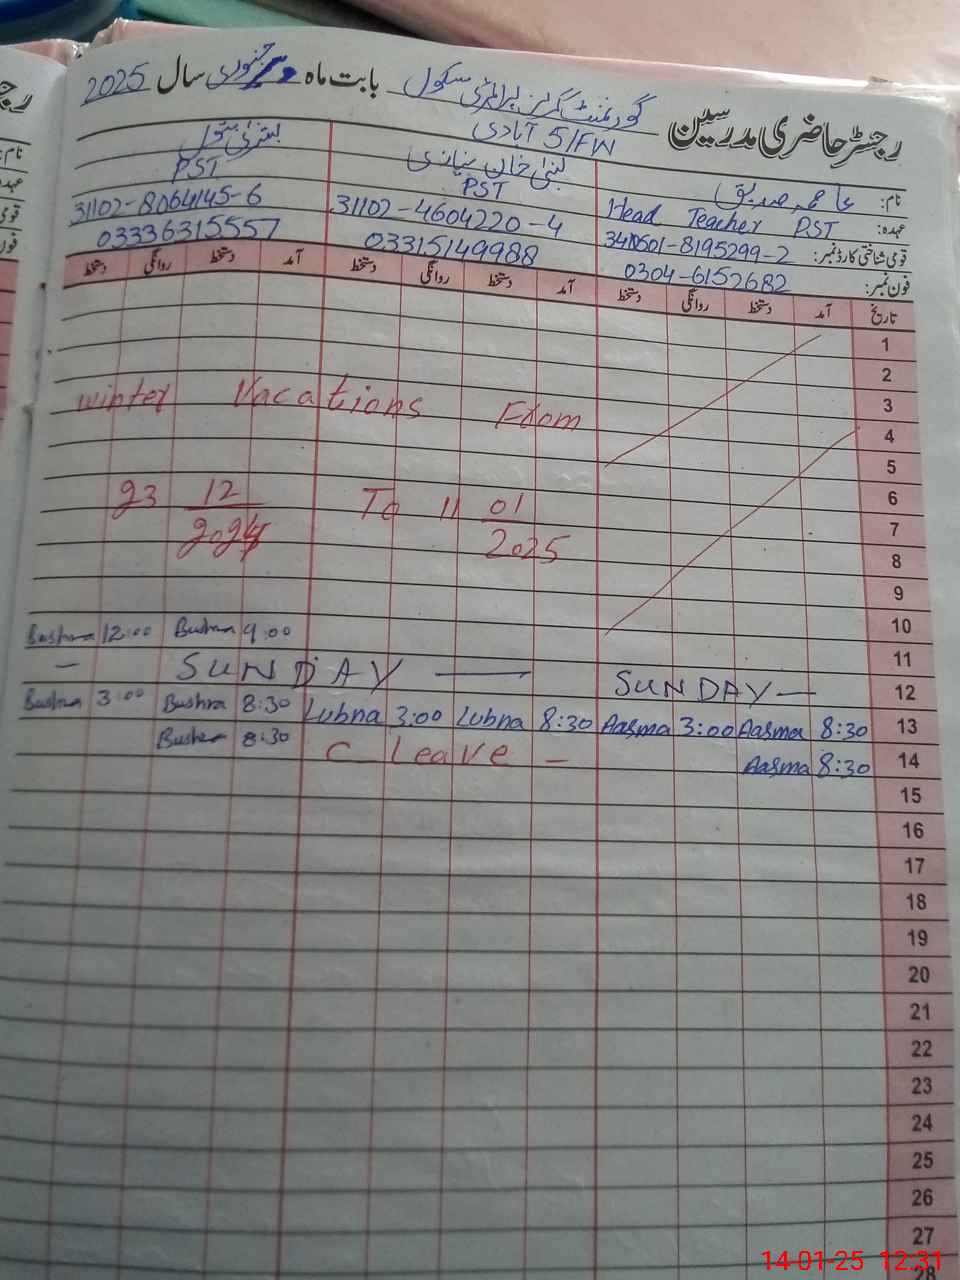 رجسٹر حاضری مدرسین گورنمنٹ گرلز پرائمری سکول بابت ماہ جنوری سال 2025
آبادی 5/FW
نام: عاصمہ صدیق لبنیٰ خان نیازی بشریٰ بتول
عہدہ: Head Teacher PST PST PST
قومی شناختی کارڈ نمبر: 3410501-8195299-2 31102-4604220-4 31102-8064145-6
فون نمبر: 0304-6152682 03315149988 03336315557
تاریخ آمد دستخط روانگی دستخط آمد دستخط روانگی دستخط آمد دستخط روانگی دستخط
1
2
3
winter Vacations From
4
5
6
23 12/2024 To 11 01/2025
7
8
9
10
Bushra 12:00 Bushra 9:00
11
— SUNDAY — SUNDAY — 12
Bushra 3:00 Bushra 8:30 Lubna 3:00 Lubna 8:30 Aasma 3:00 Aasma 8:30 13
Bushra 8:30 C Leave — Aasma 8:30 14
15
16
17
18
19
20
21
22
23
24
25
26
27
28
14-01-25 12:31